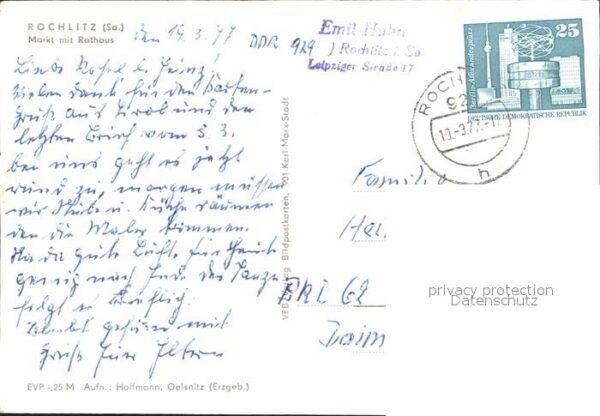 ROCHLITZ (Sa.)
Markt mit Rathaus
den 19.3.77
DDR 929
Emil Hahn
) Rochlitz i. Sa
Leipziger Straße 17
25
Berlin-Alexanderplatz
DEUTSCHE DEMOKRATISCHE REPUBLIK
ROCH
92
19.-3.77.-
h
Liebe Rosel u. Heinz!
Vielen Dank für den Karten-
gruß aus Tirol und den
letzten Brief vom 3. 3.
bei uns geht es jetzt
rund zu, morgen müssen
wir Stube u. Küche räumen
den die Maler kommen.
Na da gute Luft. für heute
genug nach Ende des
folgt es Brieflich
Bleibt gesund mit
Gruß Eure Eltern
Familie
BRD 62
VEB Bild Verlag Bildpostkarten, 901 Karl-Marx-Stadt
privacy protection
Datenschutz
EVP -,25 M Aufn.: Hoffmann, Oelsnitz (Erzgeb.)